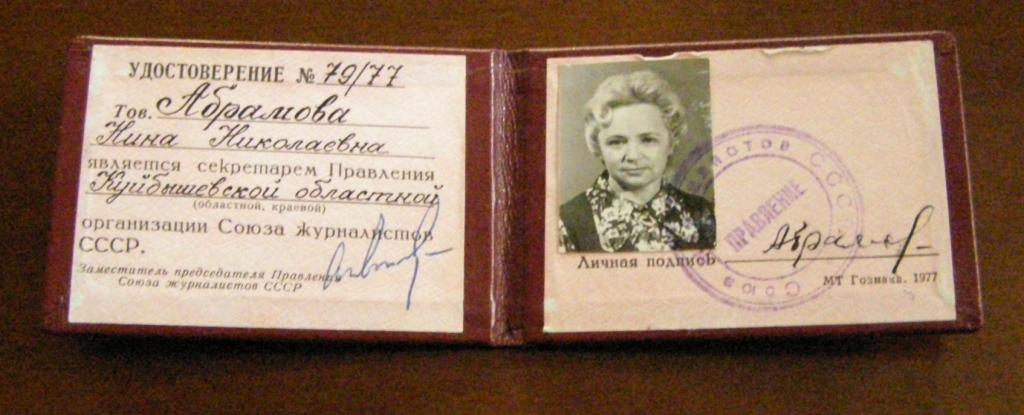 УДОСТОВЕРЕНИЕ № 79/77
Тов. Абрамова
Нина Николаевна
является секретарем Правления
Куйбышевской областной
(областной, краевой)
организации Союза журналистов
СССР.
Заместитель председателя Правления
Союза журналистов СССР
ПРАВЛЕНИЕ
Союз
СССР
Личная подпись
МТ Гознака. 1977